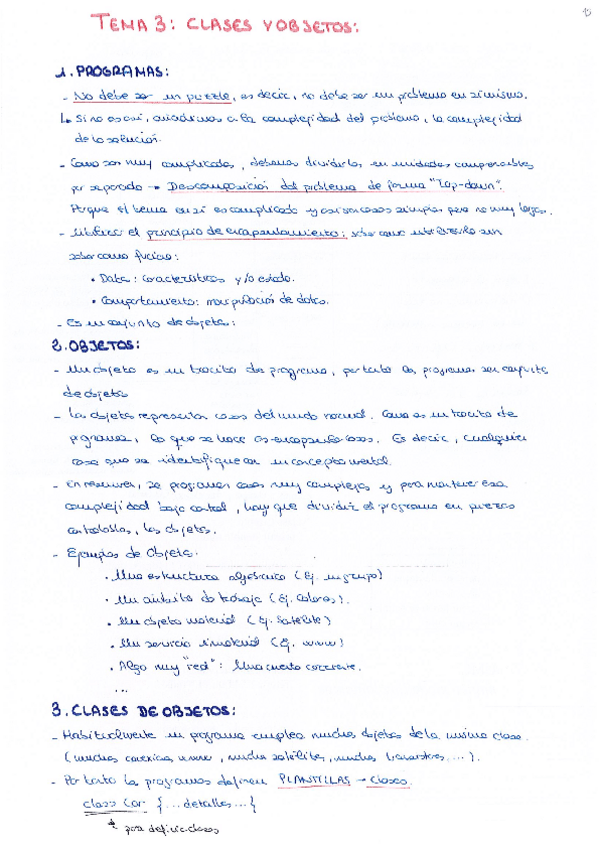 TEMA 3: CLASES Y OBJETOS:
1. PROGRAMAS:
- No debe ser un puzzle, es decir, no debe ser un problema en si mismo.
Si no es asi, anadimos a la complejidad del problema, la complejidad
de la solución.
- Como son muy complicados, debemos dividirlos en unidades comprensibles
por separado → Descomposición del problema de forma "Top-down".
Porque el tema en sí es complicado y así son cosas simples pero no muy largas.
- Utilizar el principio de encapsulamiento: saber como usarlo sin
saber como funciona:
• Datos: características y/o estado.
• Comportamiento: manipulación de datos.
- Es un conjunto de objetos:
2. OBJETOS:
- Un objeto es un trocito de programa, por tanto los programas son conjuntos
de objetos
- Los objetos representan cosas del mundo normal. Como es un trocito de
programa, lo que se hace es encapsular cosas. Es decir, cualquier
cosa que se identifique con un concepto mental.
- En resumen, se programan cosas muy complejas y para mantener esa
complejidad bajo control, hay que dividir el programa en piezas
controlables, los objetos.
- Ejemplos de Objeto.
• Una estructura algebraica (Ej. un grupo)
• Un ámbito de trabajo (Ej. Colores).
• Un objeto material (Ej. Satélite)
• Un servicio inmaterial (Ej. www)
• Algo muy "real": Una cuenta corriente.
...
3. CLASES DE OBJETOS:
- Habitualmente un programa emplea muchos objetos de la misma clase.
(muchas cuentas, muchos satélites, muchos ...).
- Por tanto los programas definen PLANTILLAS → Clases.
class Car {... detalles ...}
para definir clases